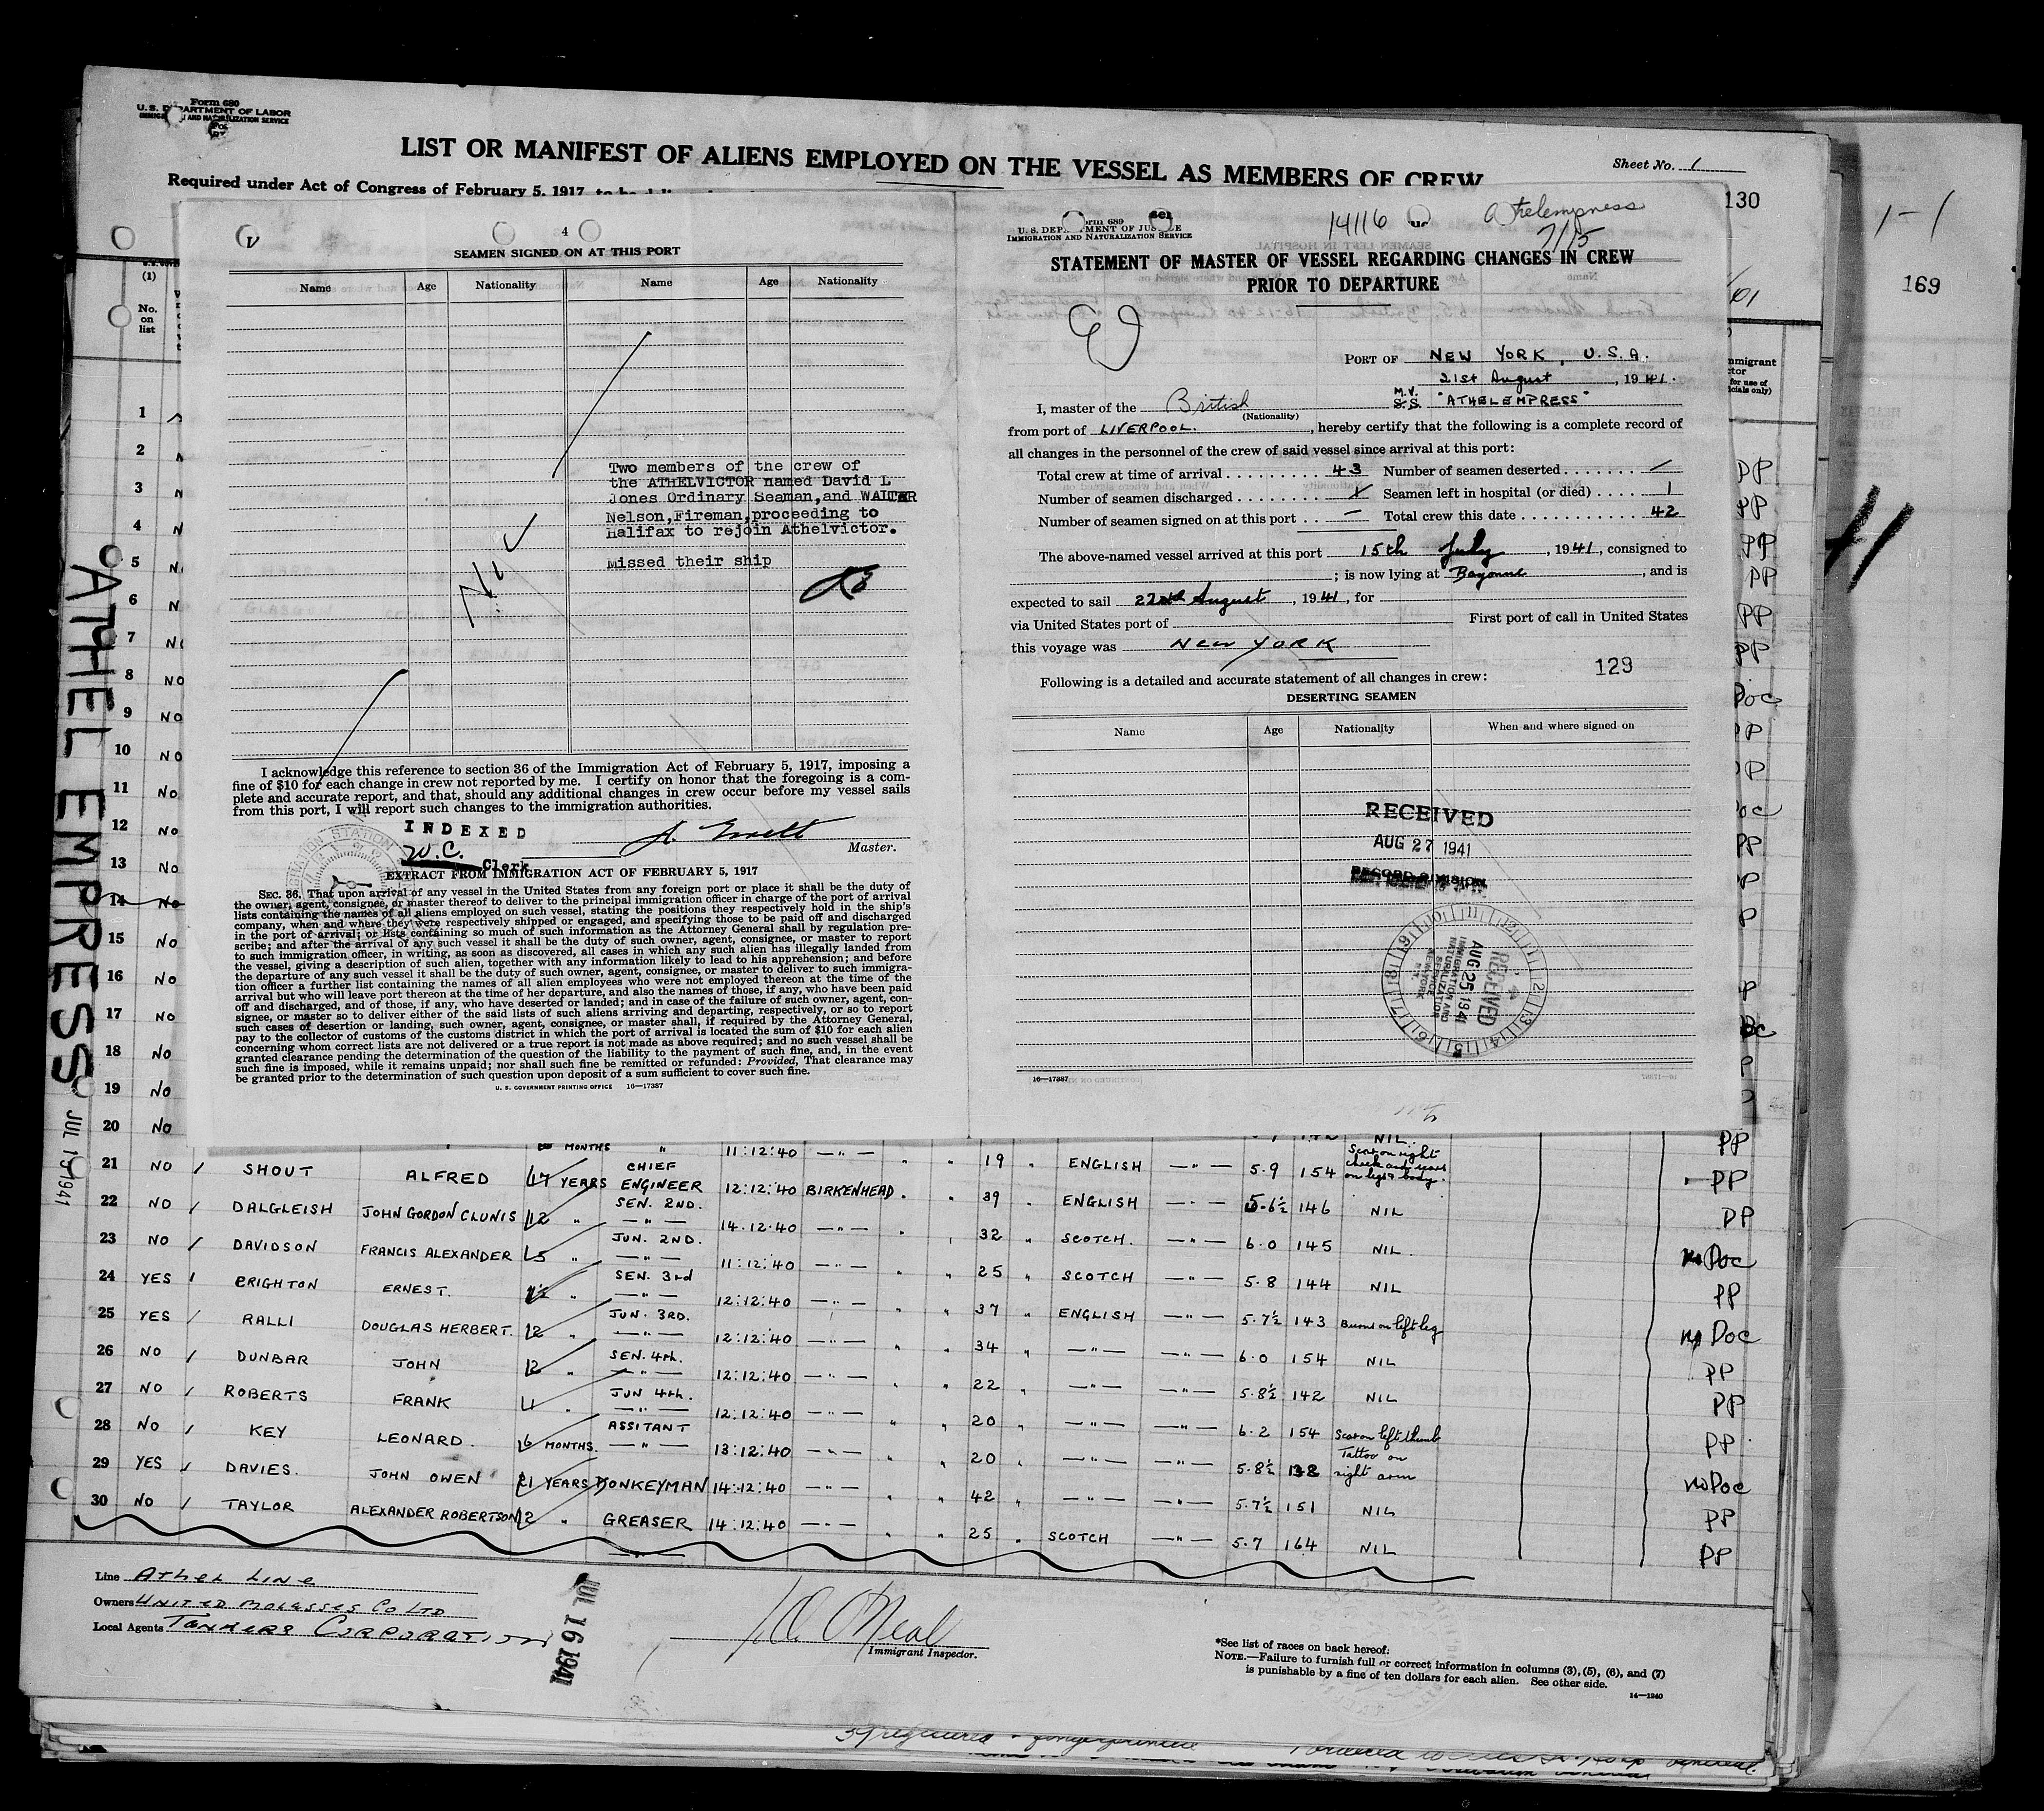 Form 680
U. S. DEPARTMENT OF LABOR
IMMIGRATION AND NATURALIZATION SERVICE
LIST OR MANIFEST OF ALIENS EMPLOYED ON THE VESSEL AS MEMBERS OF CREW
Sheet No. 1
Required under Act of Congress of February 5, 1917,
130
1-1
169
ATHEL EMPRESS
(1)
No. on list
V
4
SEAMEN SIGNED ON AT THIS PORT
Name Age Nationality Name Age Nationality
Two members of the crew of
the ATHELVICTOR named David L
Jones Ordinary Seaman,and WALTER
Nelson,Fireman,proceeding to
Halifax to rejoin Athelvictor.
Missed their ship
Nil
I acknowledge this reference to section 36 of the Immigration Act of February 5, 1917, imposing a
fine of $10 for each change in crew not reported by me. I certify on honor that the foregoing is a com-
plete and accurate report, and that, should any additional changes in crew occur before my vessel sails
from this port, I will report such changes to the immigration authorities.
INDEXED
W.C. Clerk
Master.
EXTRACT FROM IMMIGRATION ACT OF FEBRUARY 5, 1917
SEC. 36. That upon arrival of any vessel in the United States from any foreign port or place it shall be the duty of
the owner, agent, consignee, or master thereof to deliver to the principal immigration officer in charge of the port of arrival
lists containing the names of all aliens employed on such vessel, stating the positions they respectively hold in the ship's
company, when and where they were respectively shipped or engaged, and specifying those to be paid off and discharged
in the port of arrival; or lists containing so much of such information as the Attorney General shall by regulation pre-
scribe; and after the arrival of any such vessel it shall be the duty of such owner, agent, consignee, or master to report
to such immigration officer, in writing, as soon as discovered, all cases in which any such alien has illegally landed from
the vessel, giving a description of such alien, together with any information likely to lead to his apprehension; and before
the departure of any such vessel it shall be the duty of such owner, agent, consignee, or master to deliver to such immigra-
tion officer a further list containing the names of all alien employees who were not employed thereon at the time of the
arrival but who will leave port thereon at the time of her departure, and also the names of those, if any, who have been paid
off and discharged, and of those, if any, who have deserted or landed; and in case of the failure of such owner, agent, con-
signee, or master so to deliver either of the said lists of such aliens arriving and departing, respectively, or so to report
such cases of desertion or landing, such owner, agent, consignee, or master shall, if required by the Attorney General,
pay to the collector of customs of the customs district in which the port of arrival is located the sum of $10 for each alien
concerning whom correct lists are not delivered or a true report is not made as above required; and no such vessel shall be
granted clearance pending the determination of the question of the liability to the payment of such fine, and, in the event
such fine is imposed, while it remains unpaid; nor shall such fine be remitted or refunded: Provided, That clearance may
be granted prior to the determination of such question upon deposit of a sum sufficient to cover such fine.
U. S. GOVERNMENT PRINTING OFFICE 16—17387
Form 689
U. S. DEPARTMENT OF JUSTICE
IMMIGRATION AND NATURALIZATION SERVICE
14116
Athelempress
7/15
STATEMENT OF MASTER OF VESSEL REGARDING CHANGES IN CREW
PRIOR TO DEPARTURE
PORT OF NEW YORK, U.S.A.
21st August, 1941.
I, master of the British M.V. S.S. "ATHELEMPRESS"
(Nationality)
from port of LIVERPOOL., hereby certify that the following is a complete record of
all changes in the personnel of the crew of said vessel since arrival at this port:
Total crew at time of arrival 43 Number of seamen deserted
Number of seamen discharged Seamen left in hospital (or died) 1
Number of seamen signed on at this port — Total crew this date 42
The above-named vessel arrived at this port 15th July, 1941, consigned to
; is now lying at Bayonne, and is
expected to sail 22nd August, 1941, for
via United States port of First port of call in United States
this voyage was NEW YORK
129
Following is a detailed and accurate statement of all changes in crew:
DESERTING SEAMEN
Name Age Nationality When and where signed on
RECEIVED
AUG 27 1941
RECORD DIVISION
RECEIVED
AUG 25 1941
IMMIGRATION AND
NATURALIZATION
SERVICE
NEW YORK
16—17387
JUL 15 1941
MONTHS " 11:12:40 —"— " " 19 " ENGLISH —"— 5.9 154 Scar on right cheek and scars on leg & body. PP
21 NO / SHOUT ALFRED 47 YEARS CHIEF ENGINEER 12:12:40 BIRKENHEAD. " 39 " ENGLISH —"— 5.6½ 146 NIL PP
22 NO / DALGLEISH JOHN GORDON CLUNIS 12 " SEN. 2ND. —"— 14.12.40 —"— " 32 " SCOTCH. —"— 6.0 145 NIL. PP
23 NO / DAVIDSON FRANCIS ALEXANDER 5 " JUN. 2ND. —"— 11:12:40 —"— " " 25 " SCOTCH —"— 5.8 144 NIL No Doc
24 YES / CRIGHTON ERNEST. " SEN. 3rd —"— 12:12:40 —"— " " 37 " ENGLISH —"— 5.7½ 143 Burns on left leg PP
25 YES / RALLI DOUGLAS HERBERT. 12 " JUN. 3RD. —"— 12:12:40 —"— " " 34 " —"— —"— 6.0 154 NIL No Doc
26 NO / DUNBAR JOHN 12 " SEN. 4th. —"— 12:12:40 —"— " " 22 " —"— —"— 5.8½ 142 NIL PP
27 NO / ROBERTS FRANK 4 " JUN 4th. —"— 12:12:40 —"— " " 20 " —"— —"— 6.2 154 Scar on left thumb PP
28 NO / KEY LEONARD. 6 MONTHS. ASSITANT —"— 13:12:40 —"— " 20 " —"— —"— 5.8½ 138 Tattoo on right arm PP
29 YES / DAVIES. JOHN OWEN 21 YEARS DONKEYMAN 14:12:40 —"— " " 42 " —"— —"— 5.7½ 151 NIL No Doc
30 NO / TAYLOR ALEXANDER ROBERTSON 12 " GREASER 14:12:40 —"— " " 25 " SCOTCH —"— 5.7 164 NIL PP
Line ATHEL LINE
Owners UNITED MOLASSES CO LTD
Local Agents TANKERS CORPORATION
JUL 16 1941
Immigrant Inspector.
*See list of races on back hereof.
NOTE.—Failure to furnish full or correct information in columns (3), (5), (6), and (7)
is punishable by a fine of ten dollars for each alien. See other side.
14—1240